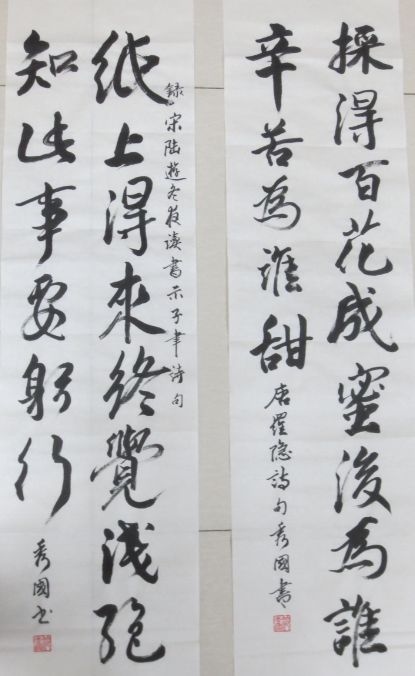 採得百花成蜜後為誰
辛苦為誰甜
唐羅隐詩句秀國書
錄宋陆遊冬夜读書示子聿诗句
纸上得來终覺浅绝
知此事要躬行
秀國书